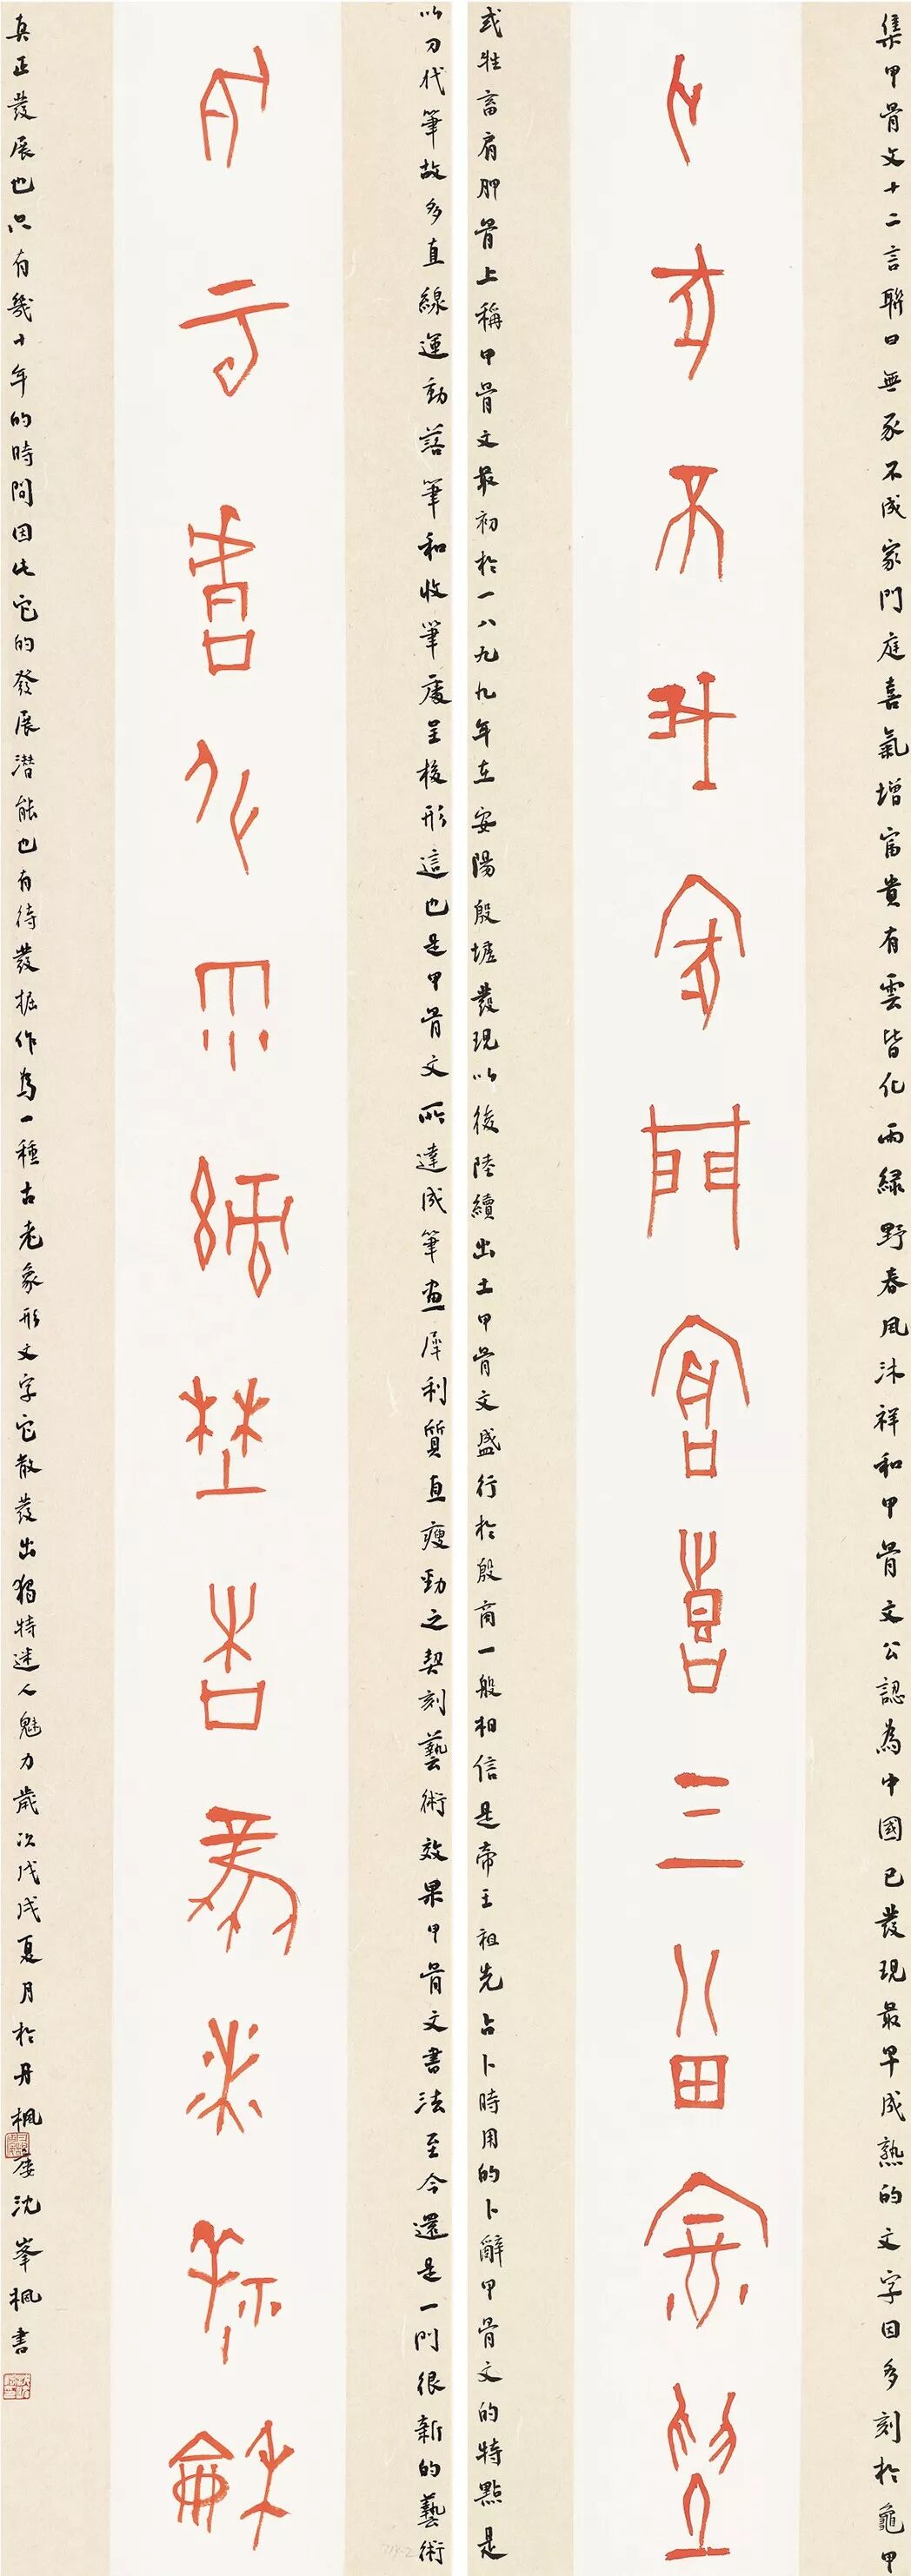 集甲骨文十二言聯曰無豕不成家門庭喜氣增富貴有雲皆化雨緑野春風沐祥和甲骨文公認為中國已發現最早成熟的文字因多刻於龜甲
無豕不成家門庭喜氣增富貴
或牲畜肩胛骨上稱甲骨文最初於一八九九年在安陽殷墟發現以後陸續出土甲骨文盛行於殷商一般相信是帝王祖先占卜時用的卜辭甲骨文的特點是
以刀代筆故多直線運動落筆和收筆處呈梭形這也是甲骨文所達成筆畫犀利質直瘦勁之契刻藝術效果甲骨文書法至今還是一門很新的藝術
有雲皆化雨緑野春風沐祥和
真正發展也只有幾十年的時間因此它的發展潛能也有待發掘作為一種古老象形文字它散發出獨特迷人魅力歲次戊戌夏月於丹楓廔沈峯楓書